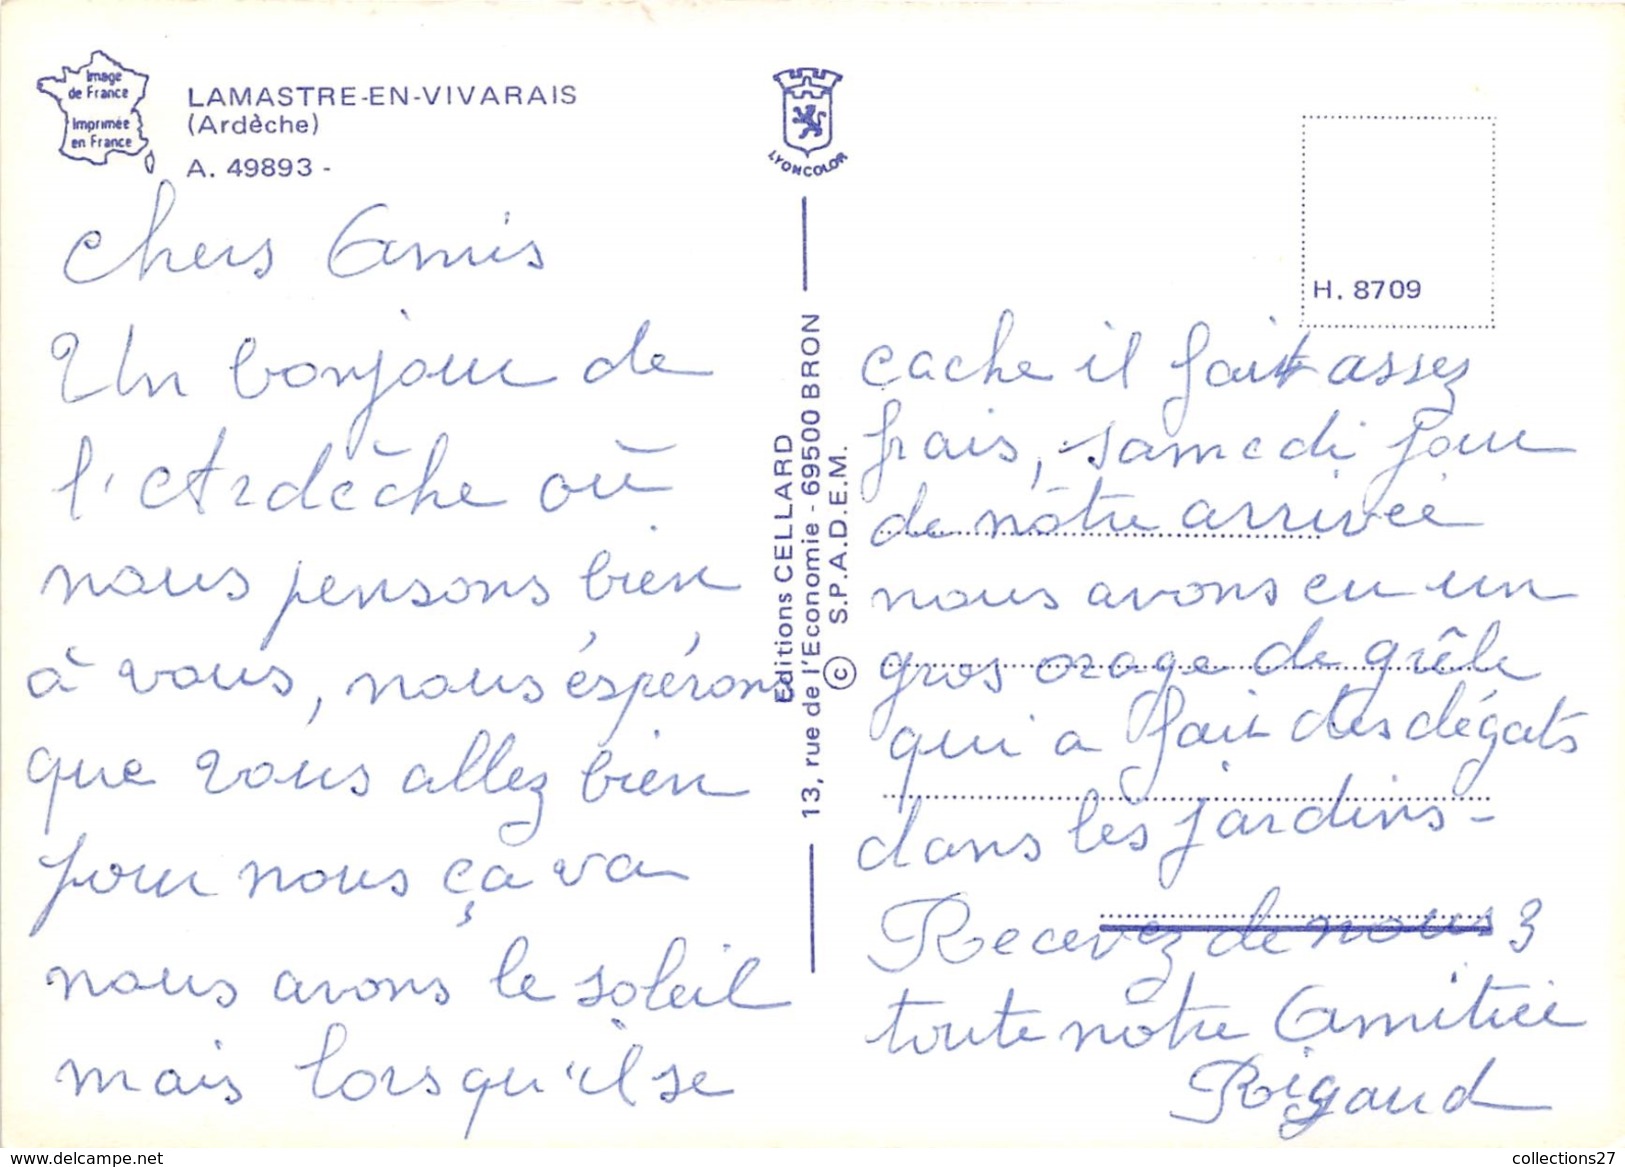 Image
de France
Imprimée
en France
LAMASTRE-EN-VIVARAIS
(Ardèche)
A. 49893 -
LYONCOLOR
H. 8709
Editions CELLARD
13, rue de l'Economie - 69500 BRON
© S.P.A.D.E.M.
Chers Amis
Un bonjour de
l'Ardèche où
nous pensons bien
à vous, nous éspérons
que vous allez bien
pour nous ça va
nous avons le soleil
mais lorsqu'il se
cache il fait assez
frais, samedi jour
de nôtre arrivée
nous avons eu un
gros orage de grêle
qui a fait des dégats
dans les jardins -
Recevez de nous 3
toute nôtre Amitiée
Rigaud
collections27